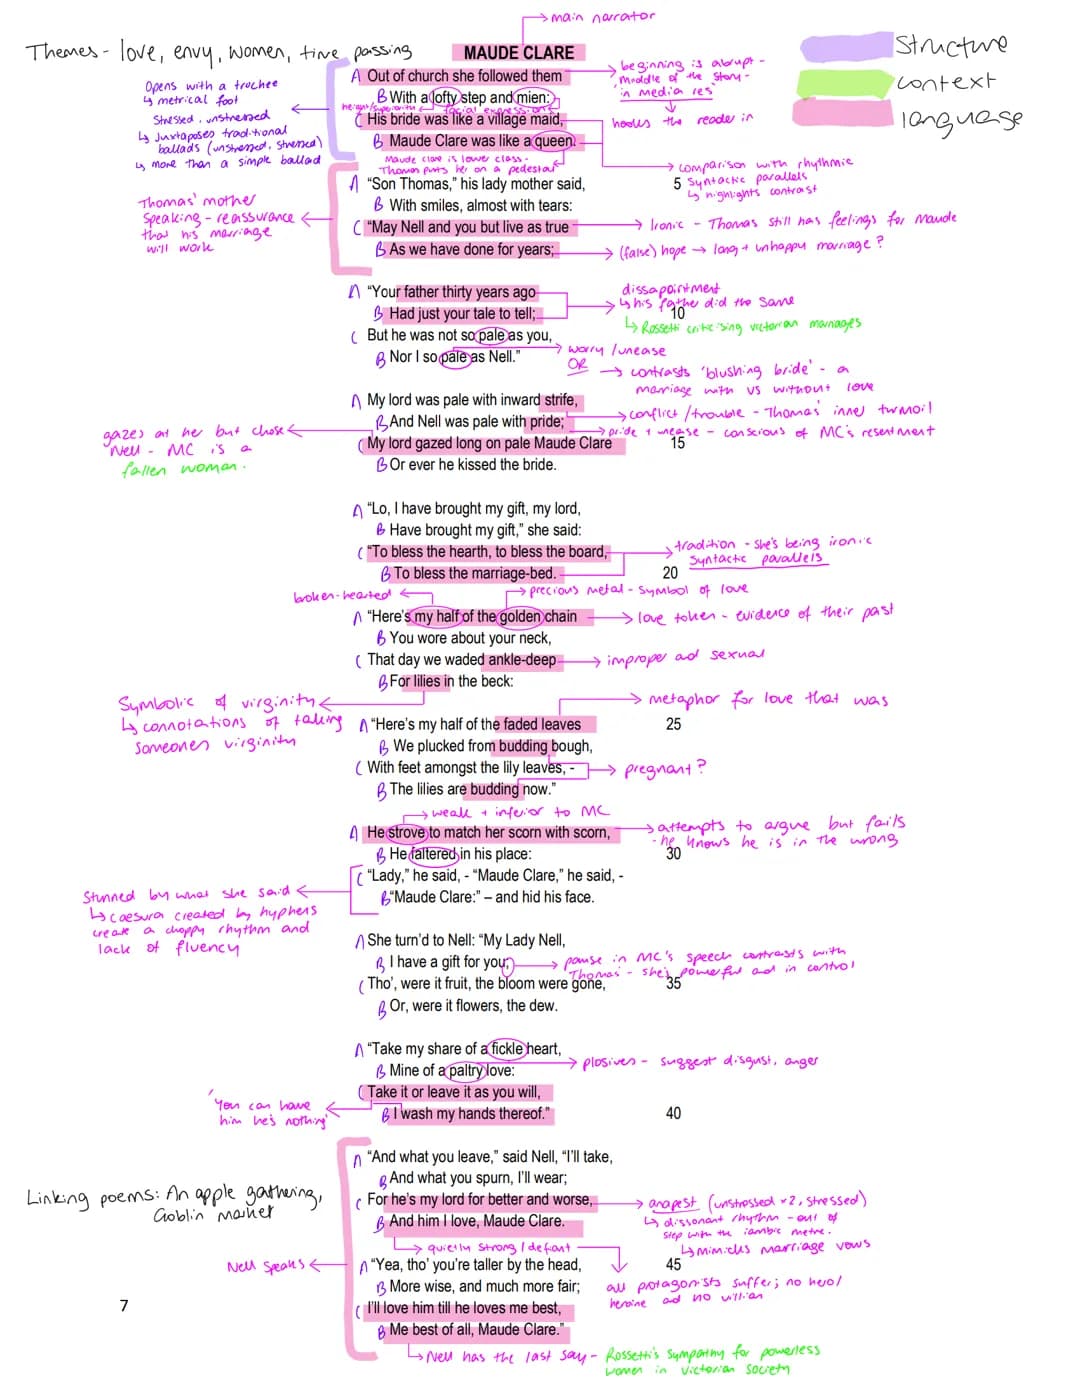 main narrator
Themes - love, envy, women, time passing
MAUDE CLARE
Structure
context
language
Opens with a trochee
↳ metrical foot
Stressed, unstressed
↳ Juxtaposes traditional
ballads (unstressed, stressed)
↳ more than a simple ballad
A Out of church she followed them
B With a lofty step and mien:
height/superiority
facial expression
C His bride was like a village maid,
B Maude Clare was like a queen.
Maude clare is lower class -
Thomas puts her on a pedestal
beginning is abrupt -
'middle of the story -
'in media res'
hooks the reader in
comparison with rhythmic
syntactic parallels
↳ highlights contrast
A "Son Thomas," his lady mother said, 5
B With smiles, almost with tears:
C "May Nell and you but live as true
B As we have done for years;
Thomas' mother
Speaking - reassurance
that his marriage
will work
Ironic - Thomas still has feelings for Maude
(false) hope → long + unhappy marriage?
A "Your father thirty years ago
B Had just your tale to tell; 10
C But he was not so pale as you,
B Nor I so pale as Nell."
dissapointment
↳ his father did the same
↳ Rossetti criticising victorian marriages
worry / unease
OR → contrasts 'blushing bride' - a
marriage with vs without love
A My lord was pale with inward strife,
B And Nell was pale with pride;
C My lord gazed long on pale Maude Clare 15
B Or ever he kissed the bride.
conflict / trouble - Thomas' inner turmoil
pride + unease - conscious of MC's resentment
gazes at her but chose
Nell - MC is a
fallen woman.
A "Lo, I have brought my gift, my lord,
B Have brought my gift," she said:
C "To bless the hearth, to bless the board,
B To bless the marriage-bed. 20
tradition - she's being ironic
syntactic parallels
broken-hearted
precious metal - symbol of love
A "Here's my half of the golden chain
B You wore about your neck,
C That day we waded ankle-deep
B For lilies in the beck:
love token - evidence of their past
improper and sexual
Symbolic of virginity
↳ connotations of taking
someones virginity
metaphor for love that was
A "Here's my half of the faded leaves 25
B We plucked from budding bough,
C With feet amongst the lily leaves, -
B The lilies are budding now."
pregnant?
weak + inferior to MC
A He strove to match her scorn with scorn,
B He faltered in his place: 30
C "Lady," he said, - "Maude Clare," he said, -
B "Maude Clare:" – and hid his face.
attempts to argue but fails
- he knows he is in the wrong
Stunned by what she said
↳ caesura created by hyphens
create a choppy rhythm and
lack of fluency
A She turn'd to Nell: "My Lady Nell,
B I have a gift for you;
C Tho', were it fruit, the bloom were gone, 35
B Or, were it flowers, the dew.
pause in MC's speech contrasts with
Thomas - she's powerful and in control
A "Take my share of a fickle heart,
B Mine of a paltry love:
C Take it or leave it as you will,
B I wash my hands thereof." 40
plosives - suggest disgust, anger
'You can have
him he's nothing'
A "And what you leave," said Nell, "I'll take,
B And what you spurn, I'll wear;
C For he's my lord for better and worse,
B And him I love, Maude Clare.
Linking poems: An apple gathering,
Goblin market
anapest (unstressed x2, stressed)
↳ dissonant rhythm - out of
step with the iambic metre.
↳ Mimicks marriage vows
quietly strong / defiant
Nell speaks
A "Yea, tho' you're taller by the head, 45
B More wise, and much more fair;
C I'll love him till he loves me best,
B Me best of all, Maude Clare."
all protagonists suffer; no hero/
heroine and no villian
Nell has the last say - Rossetti's sympathy for powerless
women in victorian society
7